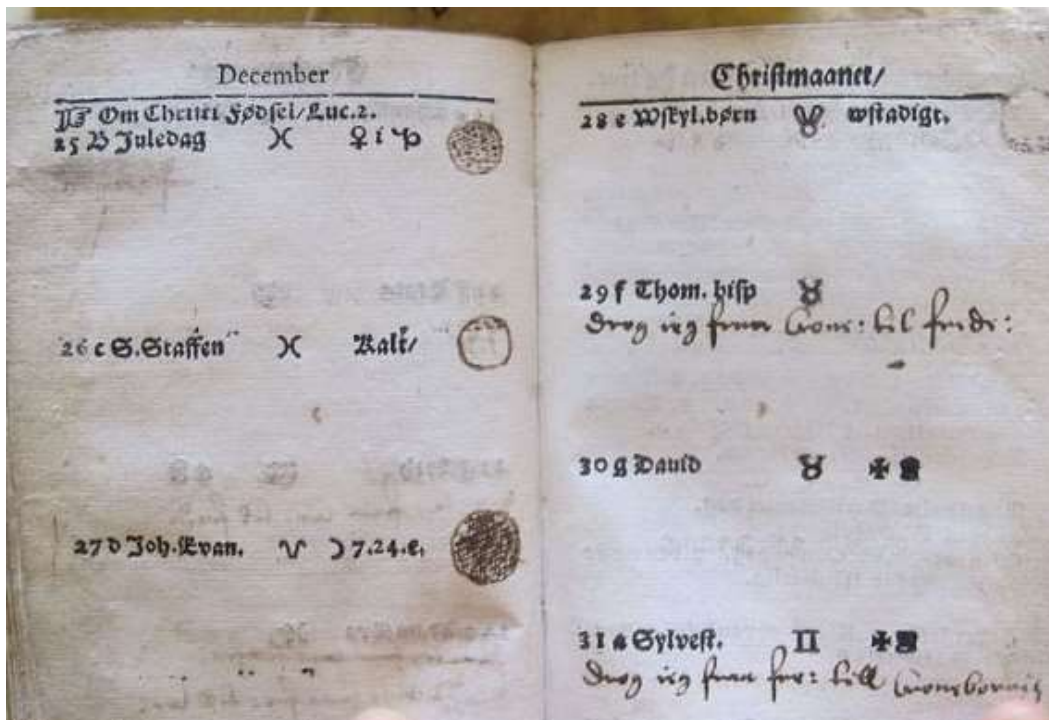 December
☞ Om Christi Fødsel/Luc.2.
25 B Juledag ♓ ♀ i ♑
26 c S.Staffen ♓ Kalt/
27 d Joh.Evan. ♈ ☽ 7.24.e.
Christmaanet/
28 e Wskyl.børn ♉ wstadigt.
29 f Thom. bisp ♉
drog ieg fraa Crone: til fredr:
30 g David ♉ ✠
31 a Sylvest. ♊ ✠
drog ieg fraa fre: till Croneborrig